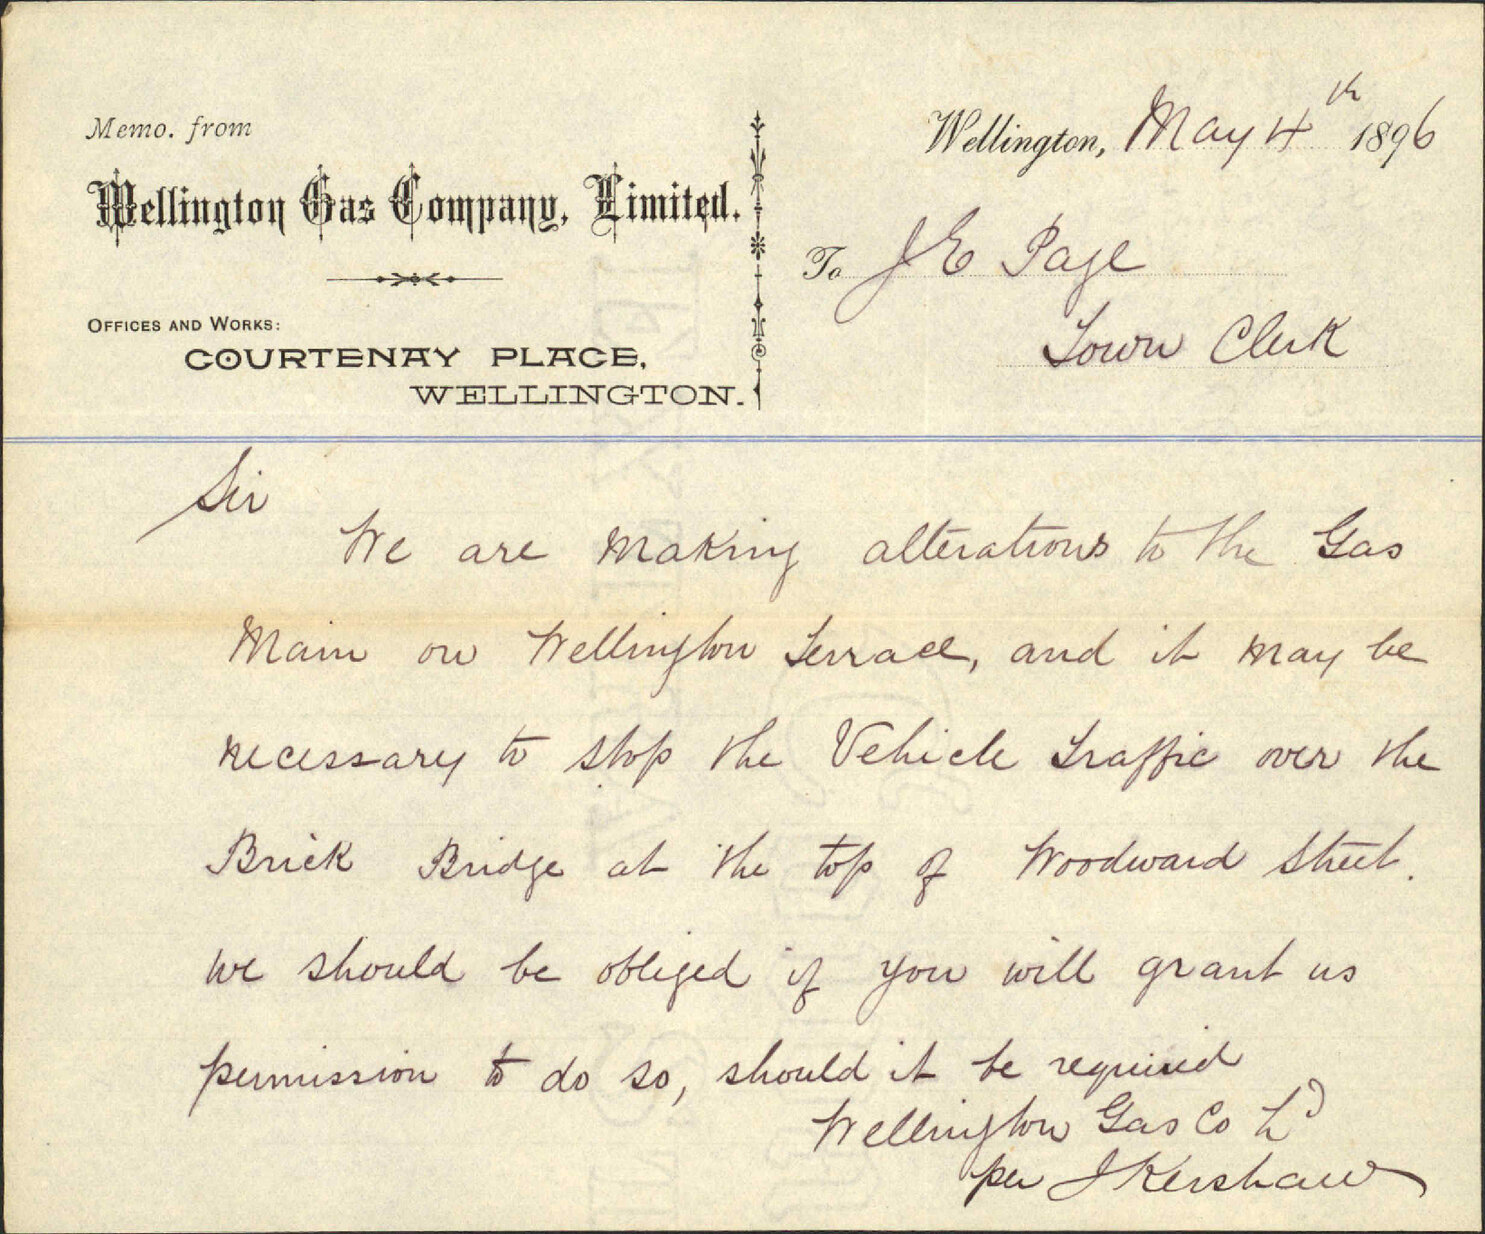 Memo. from
Wellington Gas Company, Limited.
OFFICES AND WORKS:
COURTENAY PLACE,
WELLINGTON.
Wellington, May 4th 1896
To J E Page
Town Clerk
Sir
We are making alterations to the Gas
Main on Wellington Terrace, and it may be
necessary to stop the Vehicle Traffic over the
Brick Bridge at the top of Woodward Street.
we should be obliged if you will grant us
permission to do so, should it be required
Wellington Gas Co Ld
per J Kershaw